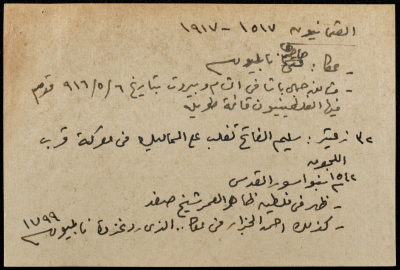 العثمانيون ١٥١٧ - ١٩١٧
- عكا: حاصرها نابليون
- مشانق جمال باشا في الشام وبيروت بتاريخ ٩١٦/٥/٦ قدم
فيها الفلسطينيون قافلة طويلة
: سليم الفاتح تغلب على المماليك في معركة قرب
اللجون
بنوا سور القدس
- ظهر في فلسطين ظاهر العمر شيخ صفد
- كذلك احمد الجزار في عكا.. الذي رد غزوة نابليون ١٧٩٩